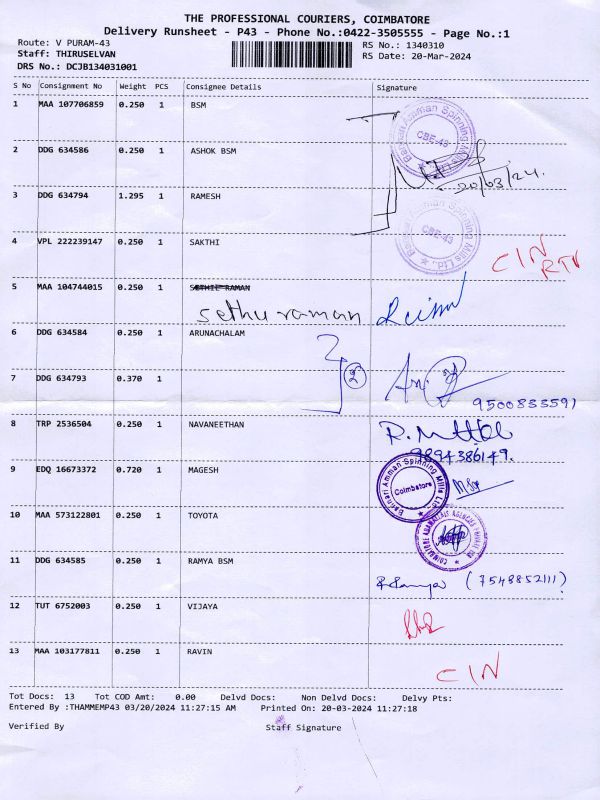 THE PROFESSIONAL COURIERS, COIMBATORE
Delivery Runsheet - P43 - Phone No.:0422-3505555 - Page No.:1
Route: V PURAM-43 RS No.: 1340310
Staff: THIRUSELVAN RS Date: 20-Mar-2024
DRS No.: DCJB134031001
S No Consignment No Weight PCS Consignee Details Signature
1 MAA 107706859 0.250 1 BSM
Bannari Amman Spinning Mills Ltd. CBE-43
2 DDG 634586 0.250 1 ASHOK BSM
20/03/24.
3 DDG 634794 1.295 1 RAMESH
Bannari Amman Spinning Mills Ltd. CBE-43
4 VPL 222239147 0.250 1 SAKTHI
CIN
RTN
5 MAA 104744015 0.250 1
Sethu raman
6 DDG 634584 0.250 1 ARUNACHALAM
2
7 DDG 634793 0.370 1
9500833591
8 TRP 2536504 0.250 1 NAVANEETHAN
9894386149.
9 EDQ 16673372 0.720 1 MAGESH
Bannari Amman Spinning Mills Ltd Coimbatore
10 MAA 573122801 0.250 1 TOYOTA
11 DDG 634585 0.250 1 RAMYA BSM
R Ramya (7548852111)
12 TUT 6752003 0.250 1 VIJAYA
13 MAA 103177811 0.250 1 RAVIN
CIN
Tot Docs: 13 Tot COD Amt: 0.00 Delvd Docs: Non Delvd Docs: Delvy Pts:
Entered By :THAMMEMP43 03/20/2024 11:27:15 AM Printed On: 20-03-2024 11:27:18
Verified By Staff Signature